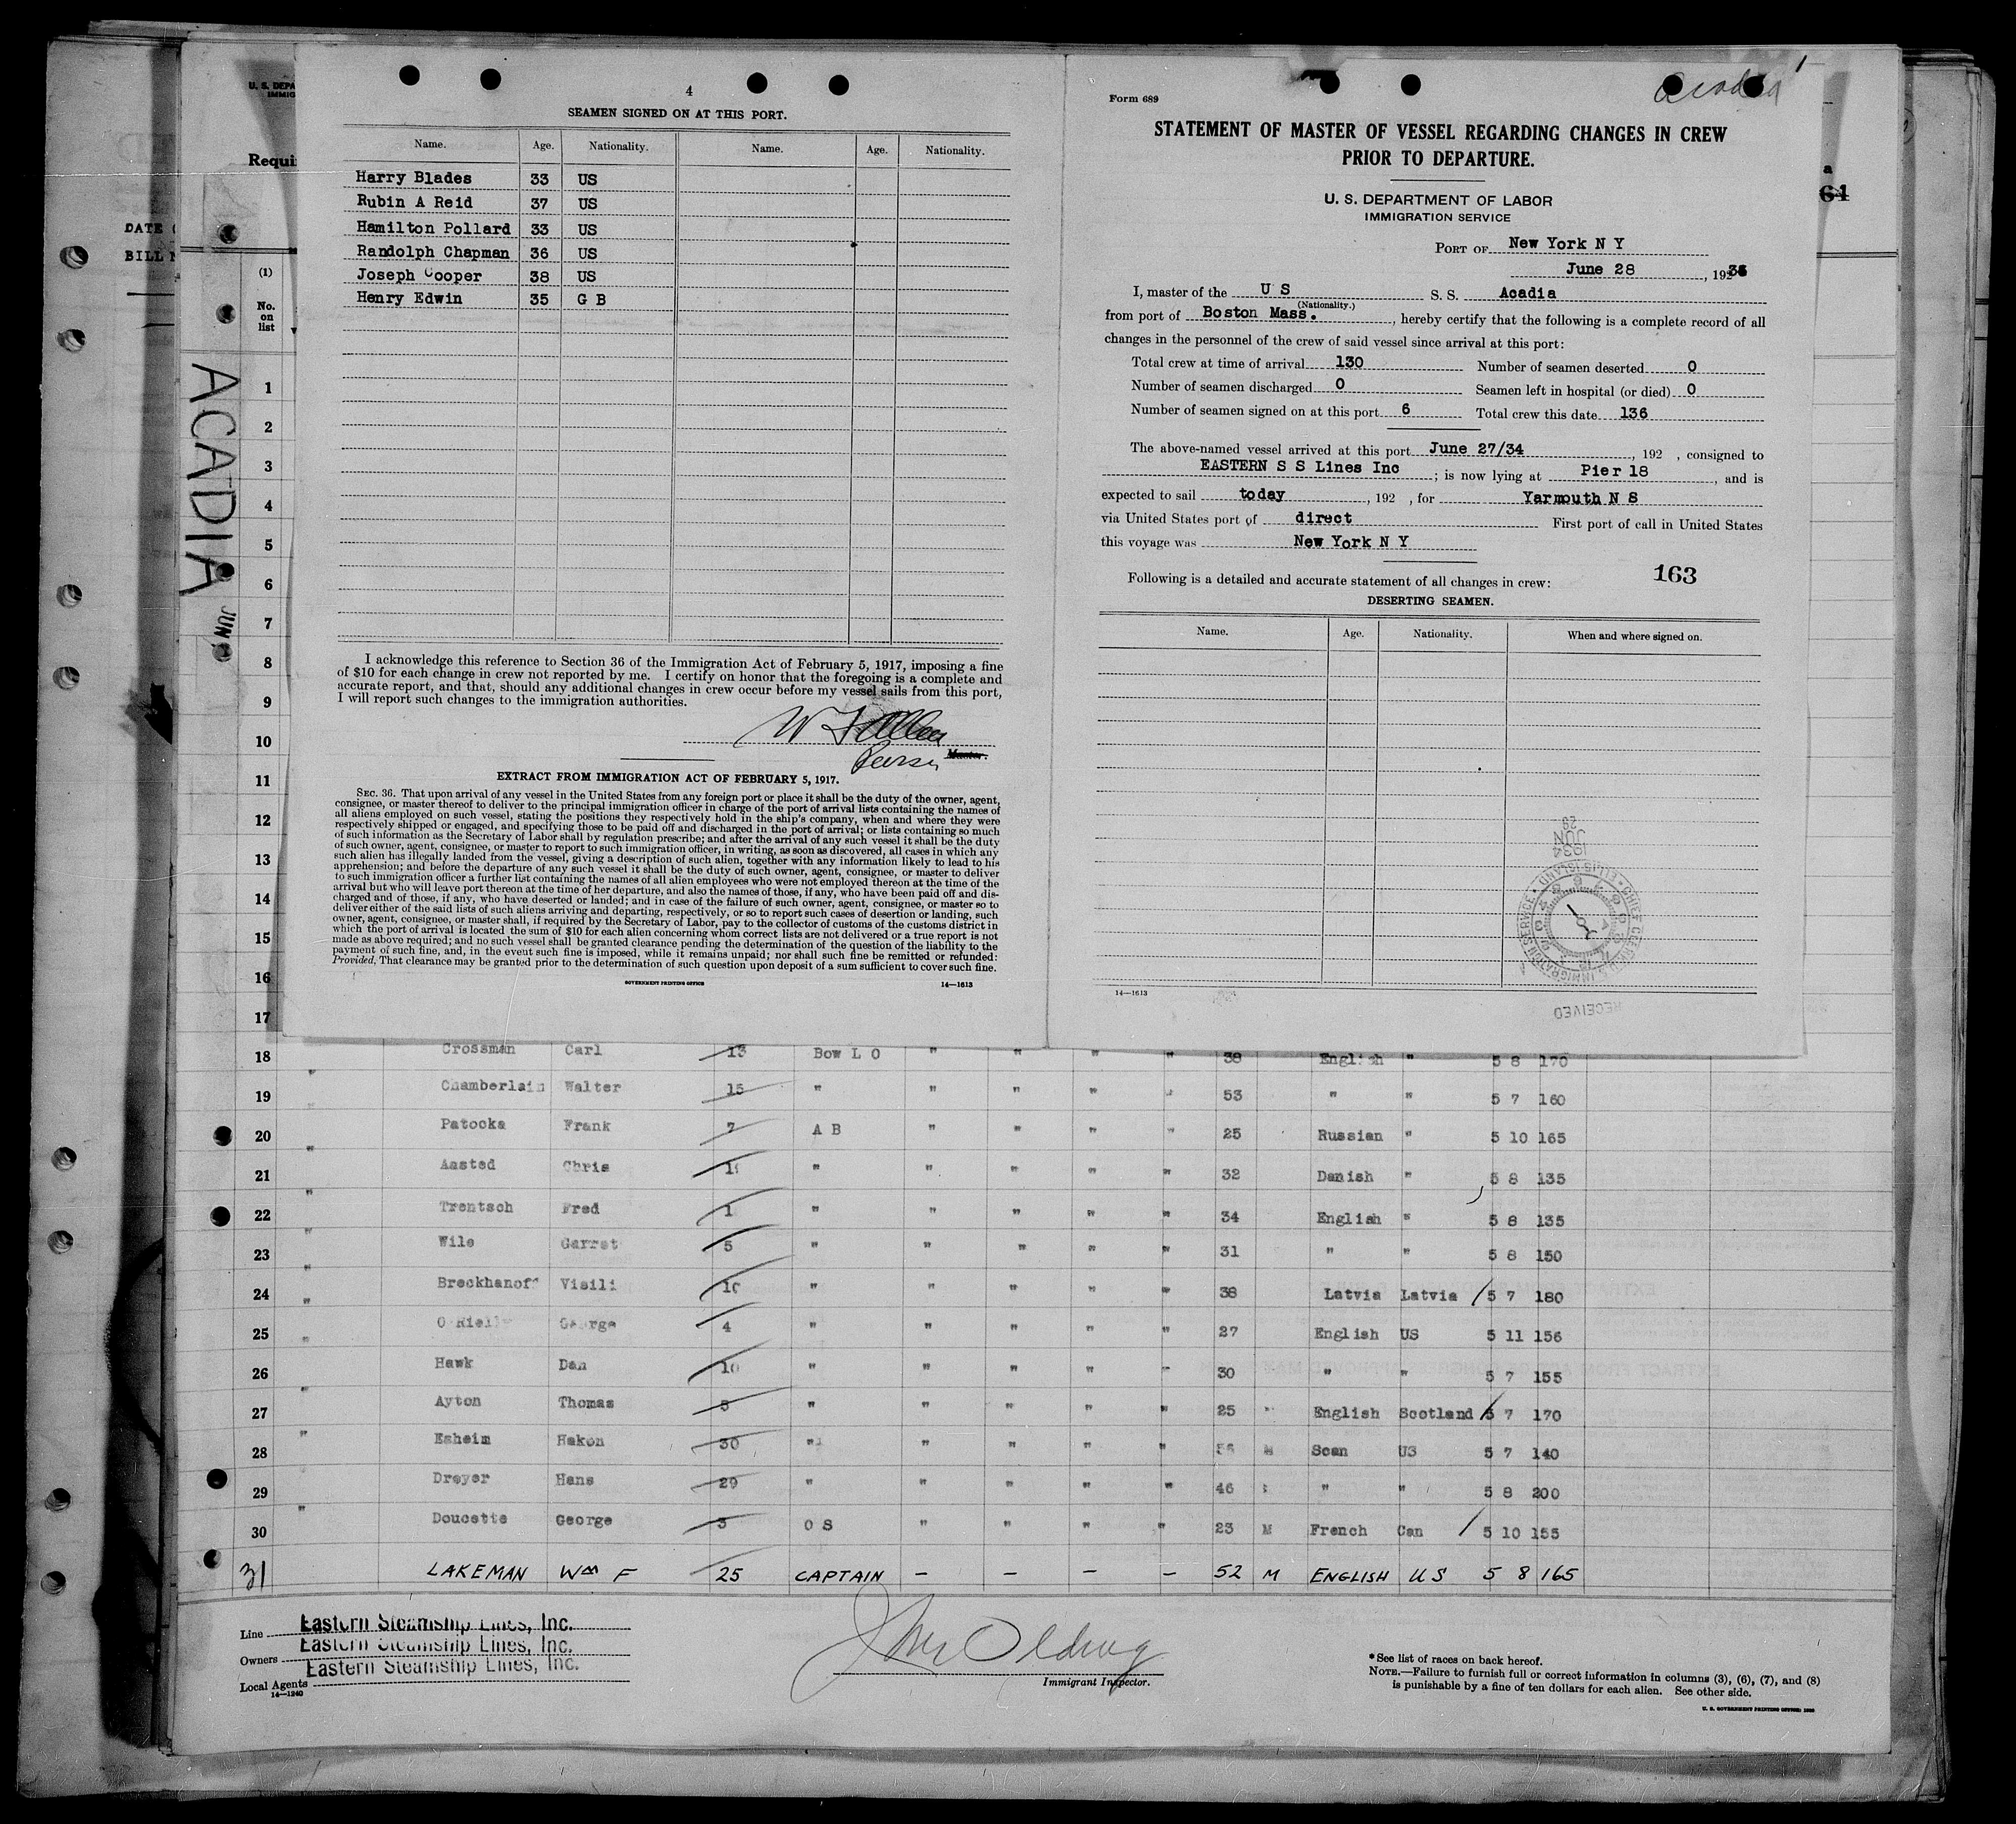 4
SEAMEN SIGNED ON AT THIS PORT.
Name. Age. Nationality. Name. Age. Nationality.
Harry Blades 33 US
Rubin A Reid 37 US
Hamilton Pollard 33 US
Randolph Chapman 36 US
Joseph Cooper 38 US
Henry Edwin 35 G B
I acknowledge this reference to Section 36 of the Immigration Act of February 5, 1917, imposing a fine
of $10 for each change in crew not reported by me. I certify on honor that the foregoing is a complete and
accurate report, and that, should any additional changes in crew occur before my vessel sails from this port,
I will report such changes to the immigration authorities.
Master.
EXTRACT FROM IMMIGRATION ACT OF FEBRUARY 5, 1917.
SEC. 36. That upon arrival of any vessel in the United States from any foreign port or place it shall be the duty of the owner, agent,
consignee, or master thereof to deliver to the principal immigration officer in charge of the port of arrival lists containing the names of
all aliens employed on such vessel, stating the positions they respectively hold in the ship's company, when and where they were
respectively shipped or engaged, and specifying those to be paid off and discharged in the port of arrival; or lists containing so much
of such information as the Secretary of Labor shall by regulation prescribe; and after the arrival of any such vessel it shall be the duty
of such owner, agent, consignee, or master to report to such immigration officer, in writing, as soon as discovered, all cases in which any
such alien has illegally landed from the vessel, giving a description of such alien, together with any information likely to lead to his
apprehension; and before the departure of any such vessel it shall be the duty of such owner, agent, consignee, or master to deliver
to such immigration officer a further list containing the names of all alien employees who were not employed thereon at the time of the
arrival but who will leave port thereon at the time of her departure, and also the names of those, if any, who have been paid off and dis-
charged and of those, if any, who have deserted or landed; and in case of the failure of such owner, agent, consignee, or master so to
deliver either of the said lists of such aliens arriving and departing, respectively, or so to report such cases of desertion or landing, such
owner, agent, consignee, or master shall, if required by the Secretary of Labor, pay to the collector of customs of the customs district in
which the port of arrival is located the sum of $10 for each alien concerning whom correct lists are not delivered or a true report is not
made as above required; and no such vessel shall be granted clearance pending the determination of the question of the liability to the
payment of such fine, and, in the event such fine is imposed, while it remains unpaid; nor shall such fine be remitted or refunded:
Provided, That clearance may be granted prior to the determination of such question upon deposit of a sum sufficient to cover such fine.
GOVERNMENT PRINTING OFFICE 14—1613
Acadia
Form 689
STATEMENT OF MASTER OF VESSEL REGARDING CHANGES IN CREW
PRIOR TO DEPARTURE.
U. S. DEPARTMENT OF LABOR
IMMIGRATION SERVICE
PORT OF New York N Y
June 28, 192
I, master of the U S S. S. Acadia
(Nationality.)
from port of Boston Mass., hereby certify that the following is a complete record of all
changes in the personnel of the crew of said vessel since arrival at this port:
Total crew at time of arrival 130 Number of seamen deserted 0
Number of seamen discharged 0 Seamen left in hospital (or died) 0
Number of seamen signed on at this port 6 Total crew this date 136
The above-named vessel arrived at this port June 27/34, 192 , consigned to
EASTERN S S Lines Inc; is now lying at Pier 18, and is
expected to sail today, 192 , for Yarmouth N S
via United States port of direct First port of call in United States
this voyage was New York N Y
163
Following is a detailed and accurate statement of all changes in crew:
DESERTING SEAMEN.
Name. Age. Nationality. When and where signed on.
28
JUN
1934
RECEIVED
14—1613
U. S. DEPA
IMMIG
Requi
DATE
BILL
a
61
(1)
No.
on
list
ACADIA
JUN
1
2
3
4
5
6
7
8
9
10
11
12
13
14
15
16
17
18 Crossman Carl 13 Bow L O " " " " 38 English " 5 8 170
19 " Chamberlain Walter 15 " " " " " 53 " " 5 7 160
20 " Patocka Frank 7 A B " " " " 25 Russian " 5 10 165
21 " Aasted Chris " " " " " 32 Danish " 5 8 135
22 " Trentsch Fred 1 " " " " " 34 English " 5 8 135
23 " Wile Garret 5 " " " " " 31 " " 5 8 150
24 " Breckhanoff Visili 10 " " " " " 38 Latvia Latvia 5 7 180
25 " O Rielly George 4 " " " " " 27 English US 5 11 156
26 Hawk Dan 10 " " " " " 30 " " 5 7 155
27 " Ayton Thomas 5 " " " " " 25 " English Scotland 5 7 170
28 " Esheim Hakon 30 " " " " " M Scan US 5 7 140
29 Dreyer Hans 29 " " " " " 46 " " 5 8 200
30 " Doucette George 3 O S " " " " 23 M French Can 5 10 155
31 LAKEMAN Wm F 25 CAPTAIN – – – – 52 M ENGLISH US 5 8 165
Line Eastern Steamship Lines, Inc.
Owners Eastern Steamship Lines, Inc.
Local Agents Eastern Steamship Lines, Inc.
14—1240
Immigrant Inspector.
*See list of races on back hereof.
NOTE.—Failure to furnish full or correct information in columns (3), (6), (7), and (8)
is punishable by a fine of ten dollars for each alien. See other side.
U. S. GOVERNMENT PRINTING OFFICE: